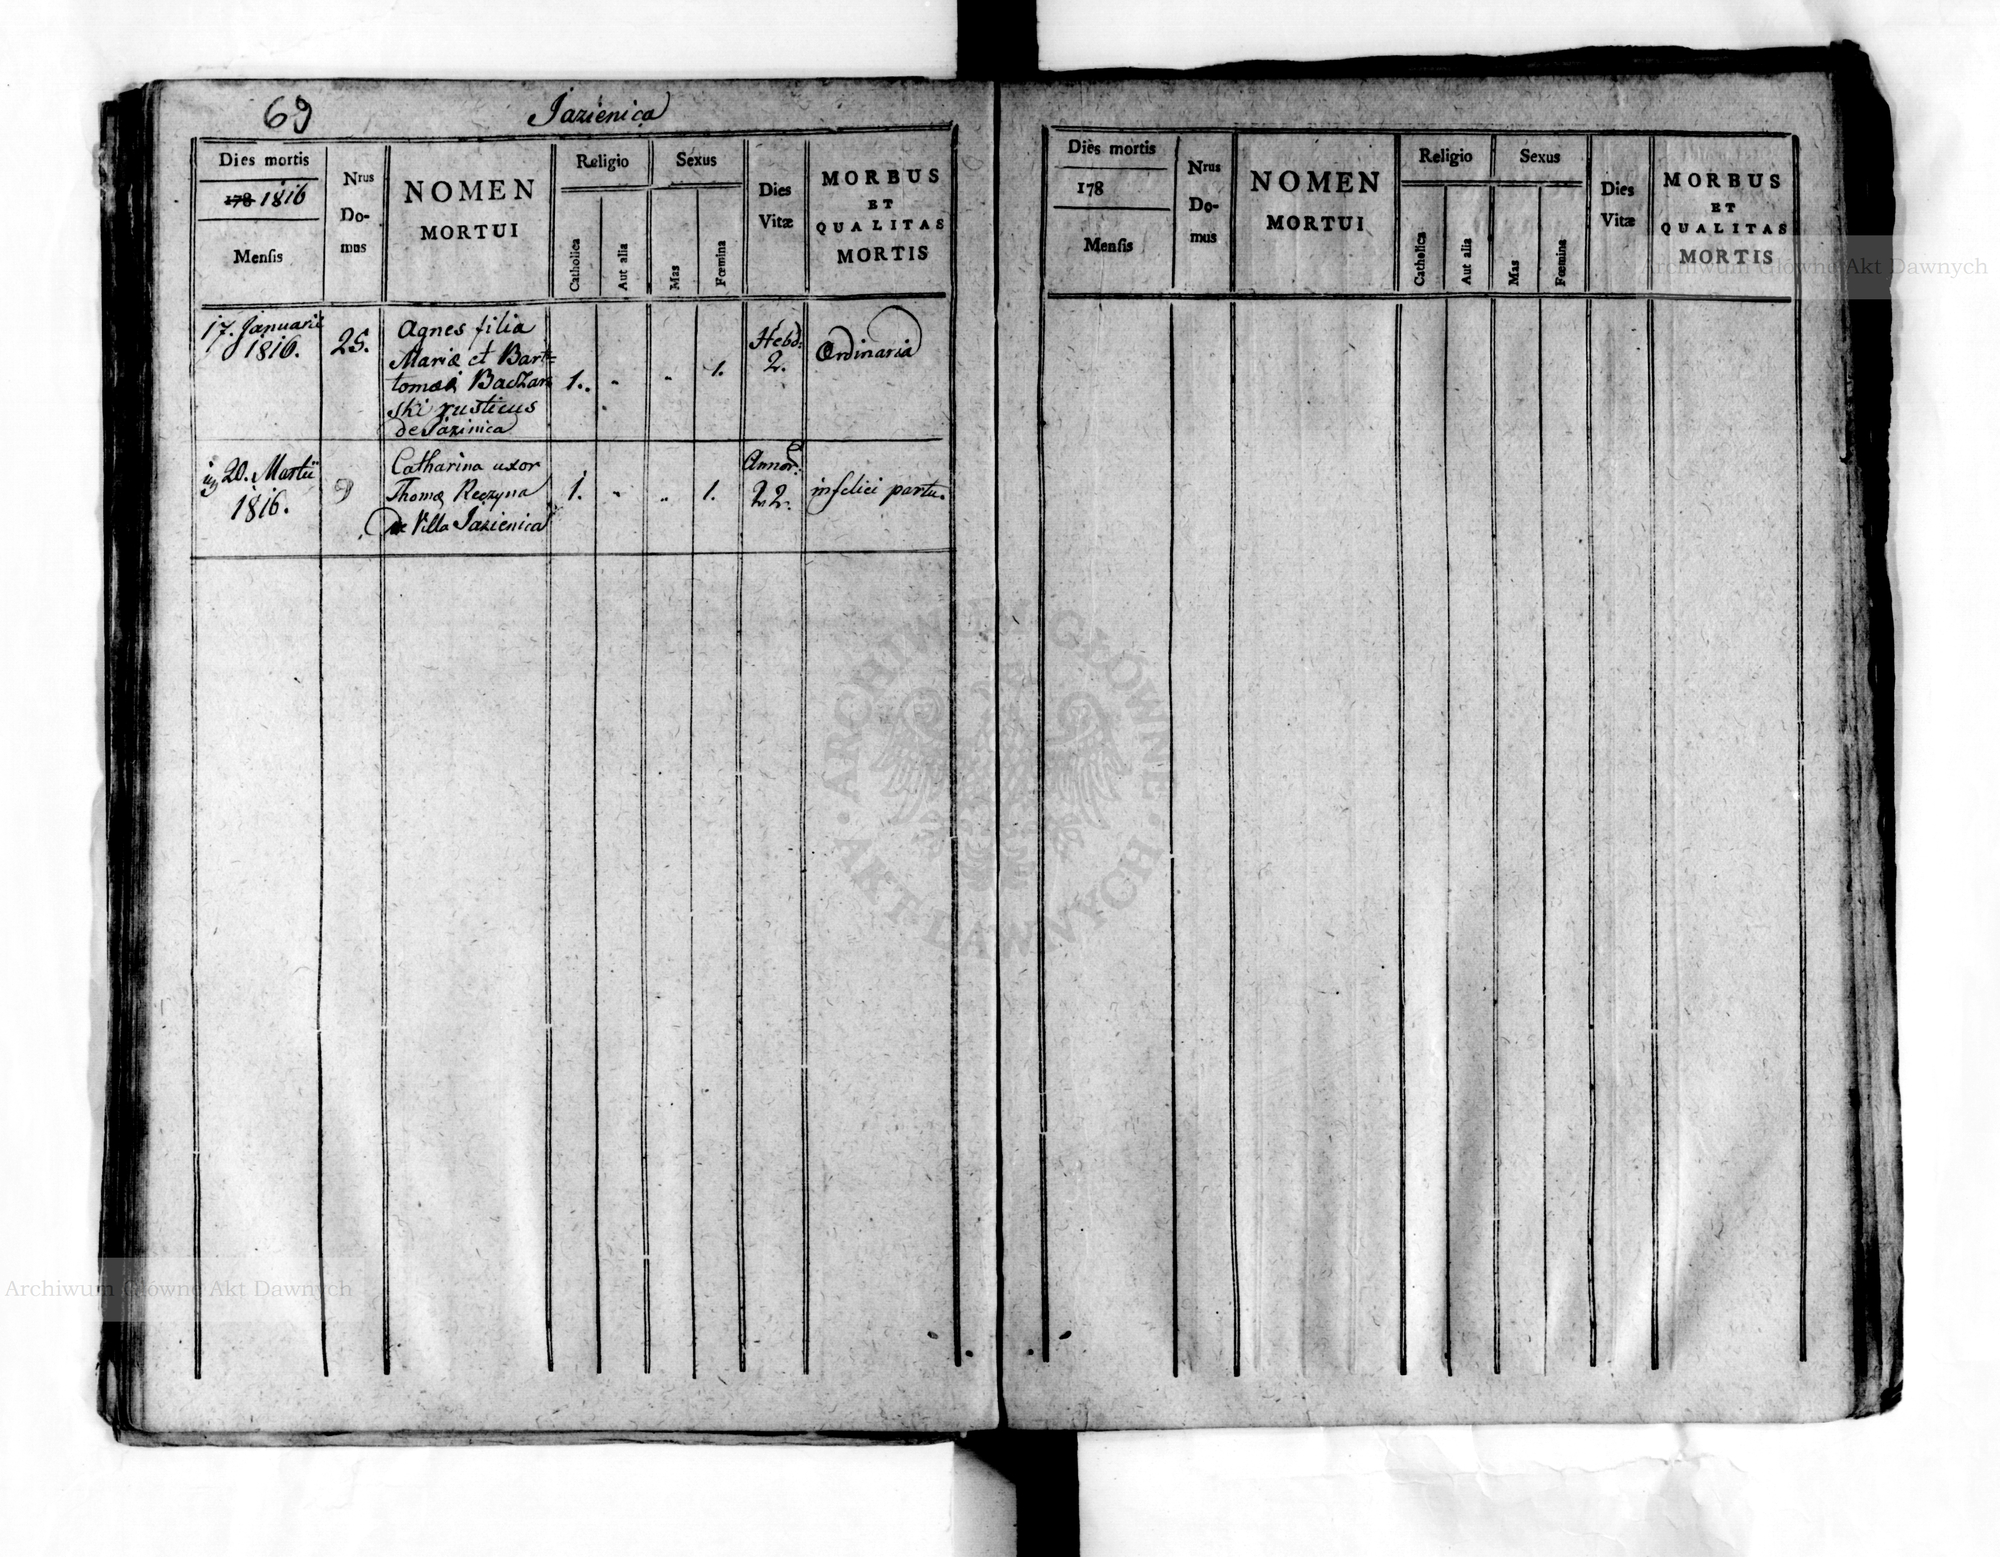 69
Jazienica
Dies mortis
178 1816
Mensis
Nrus
Do-
mus
NOMEN
MORTUI
Religio
Catholica
Aut alia
Sexus
Mas
Fœmina
Dies
Vitæ
MORBUS
ET
QUALITAS
MORTIS
17. Januarii
1816.
25.
Agnes filia
Mariæ et Bart=
tomæi
ski rusticus
de Jazinica
1.
1.
Hebd:
2.
Ordinaria
20. Martii
1816.
9
Catharina uxor
Thomæ Reczyna
de Villa Jazienica
1.
1.
Annor:
22.
infelici partu.
Dies mortis
178
Mensis
Nrus
Do-
mus
NOMEN
MORTUI
Religio
Catholica
Aut alia
Sexus
Mas
Fœmina
Dies
Vitæ
MORBUS
ET
QUALITAS
MORTIS
Archiwum Główne Akt Dawnych
ARCHIWUM GŁÓWNE · AKT DAWNYCH ·
Archiwum Główne Akt Dawnych